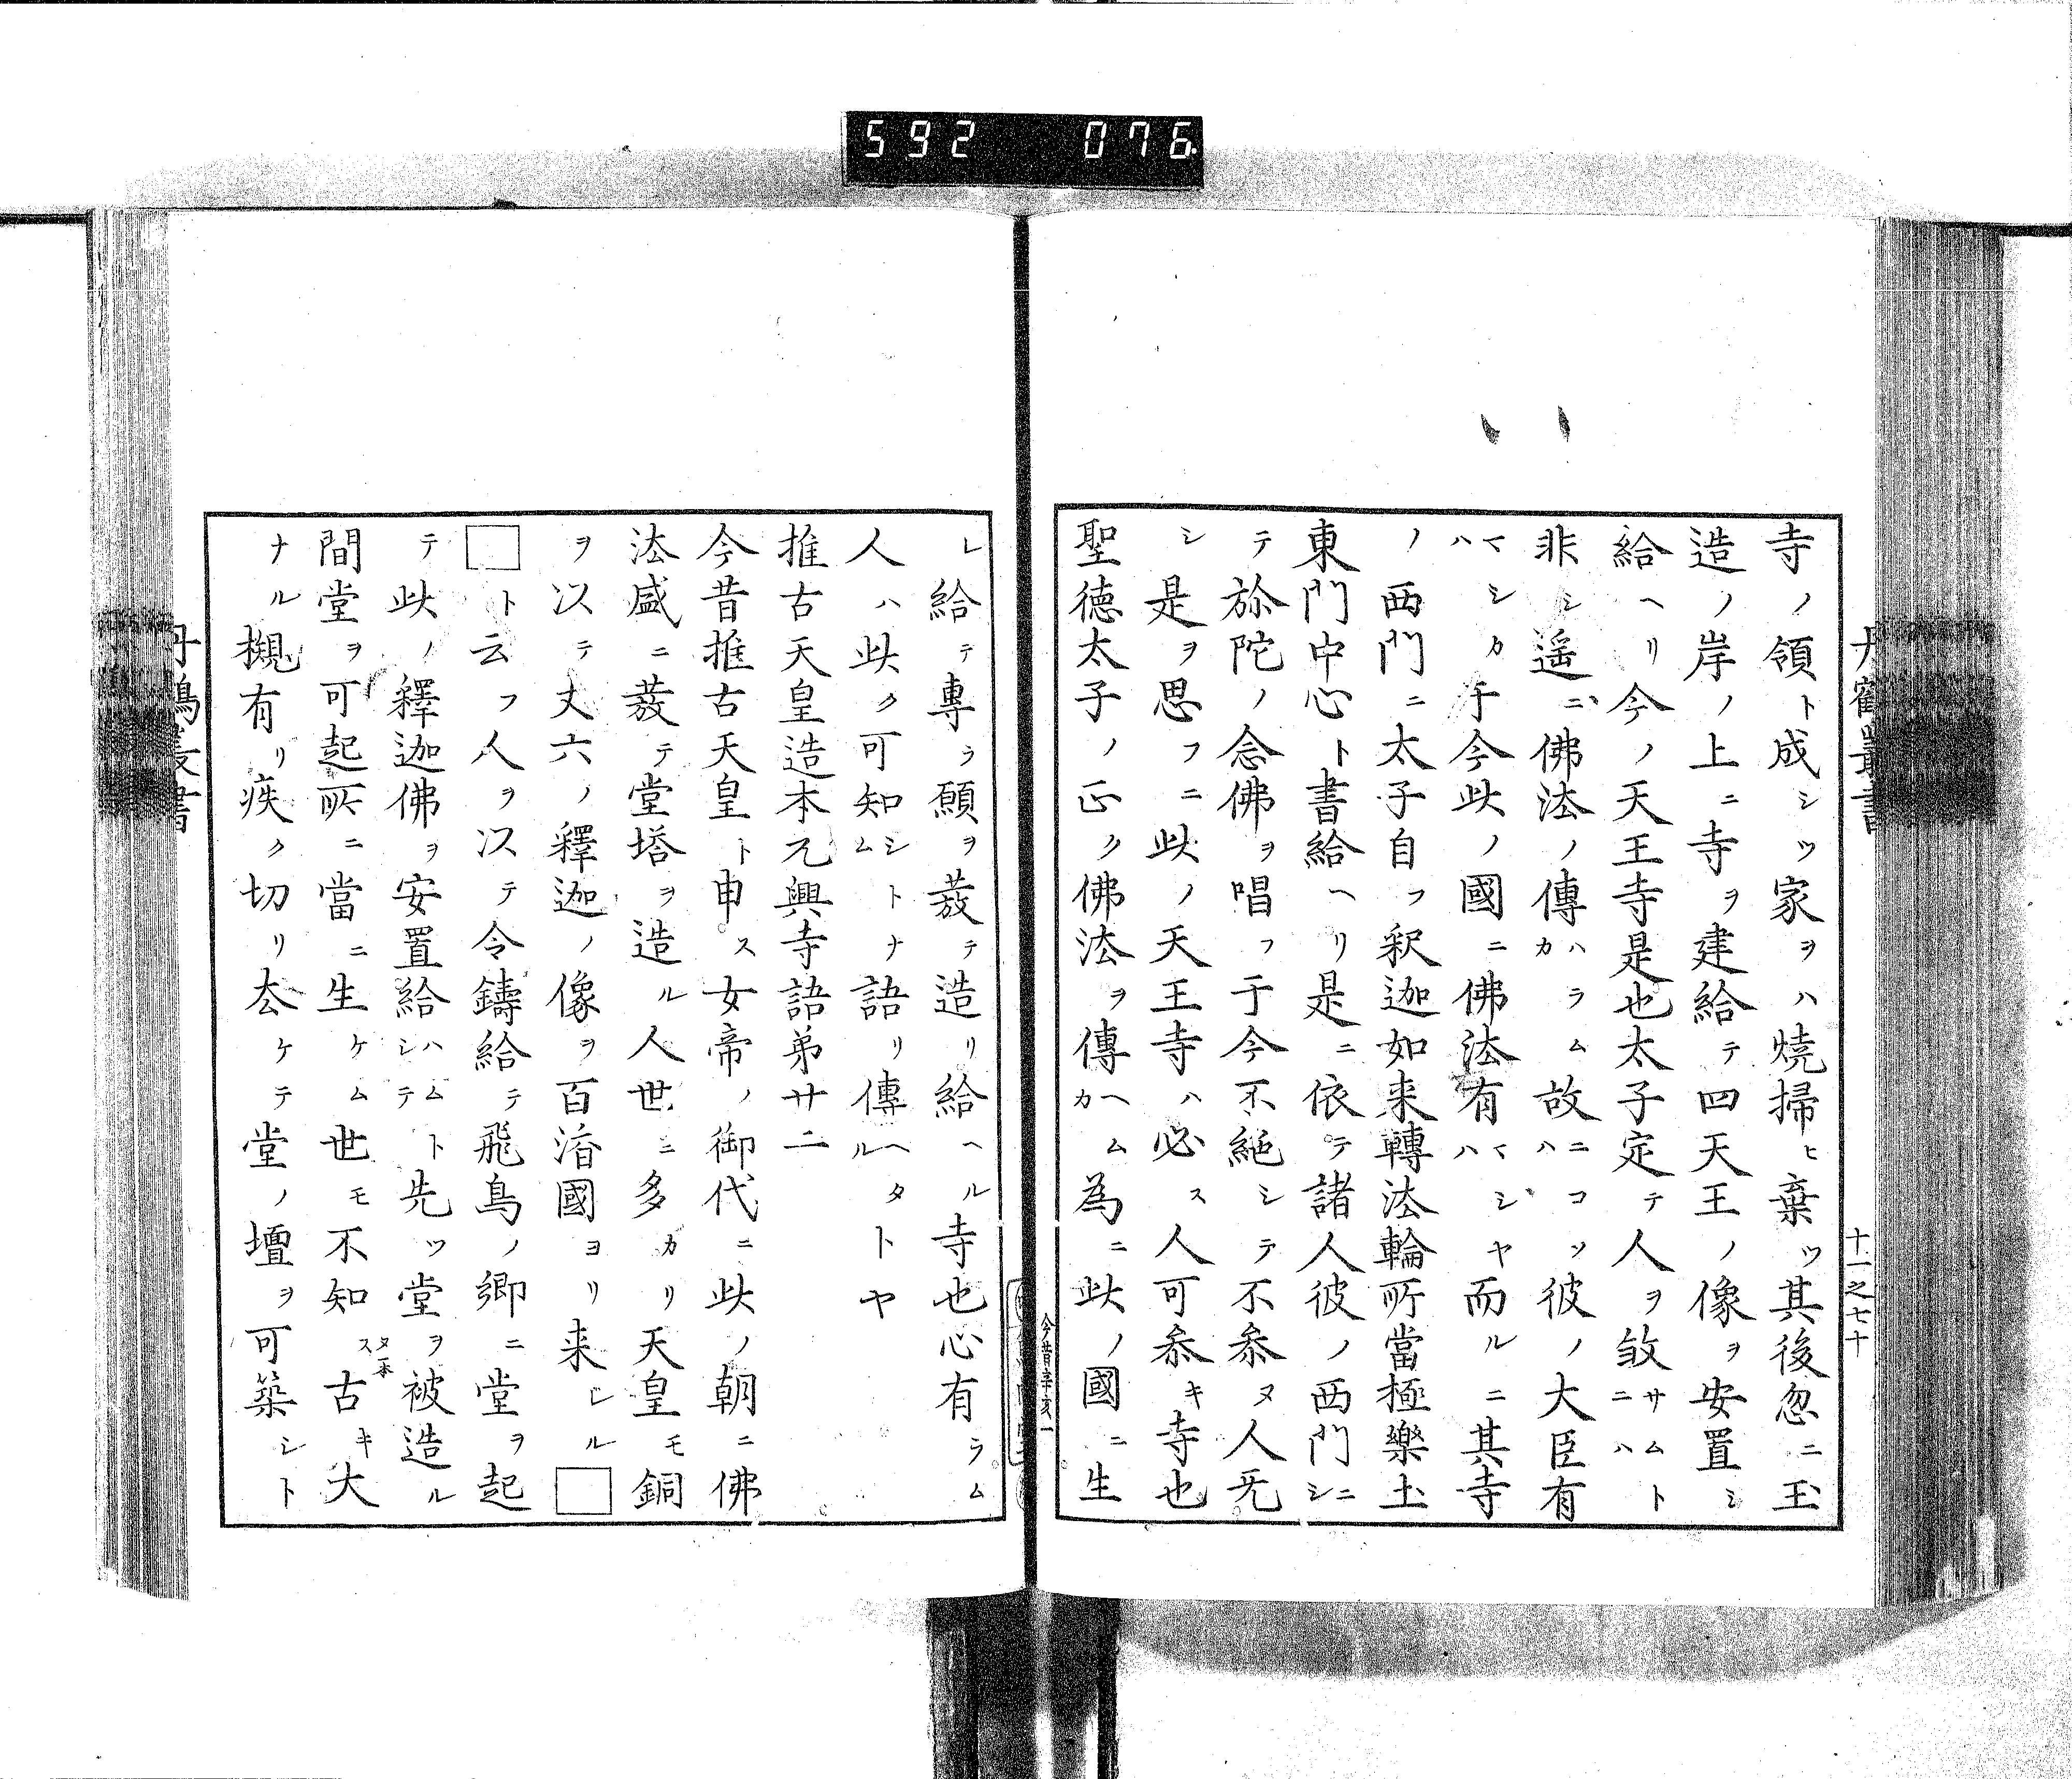 592 076
丹鶴叢書
十一之七十
寺ノ領ト成シツ家ヲハ燒掃ヒ棄ツ其後忽ニ玉
造ノ岸ノ上ニ寺ヲ建給テ四天王ノ像ヲ安置シ
給ヘリ今ノ天王寺是也太子定テ人ヲ敓サムトニハ
非シ遥ニ佛法ノ傳ハラムカ故ニコソハ彼ノ大臣有
マシカハ于今此ノ國ニ佛法有マシヤハ而ルニ其寺
ノ西門ニ太子自フ釈迦如来轉法輪所當極樂土
東門中心ト書給ヘリ是ニ依テ諸人彼ノ西門ニシ
テ旀陀ノ念佛ヲ唱フ于今不絶シテ不叅ヌ人旡
シ是ヲ思フニ此ノ天王寺ハ必ス人可叅キ寺也
聖徳太子ノ正ク佛法ヲ傳ヘムカ為ニ此ノ國ニ生
レ給テ專ラ願ヲ䇶テ造リ給ヘル寺也心有ラム
人ハ此ク可知シトナム語リ傳ヘタルトヤ
推古天皇造本元興寺語第廿二
今昔推古天皇ト申ス女帝ノ御代ニ此ノ朝ニ佛
法盛ニ䇶テ堂塔ヲ造ル人世ニ多カリ天皇モ銅
ヲ以テ丈六ノ釋迦ノ像ヲ百濟國ヨリ来レル□
□ト云フ人ヲ以テ令鑄給テ飛鳥ノ鄉ニ堂ヲ起
テ此ノ釋迦佛ヲ安置給ハムトシテ先ツ堂ヲ被造ル
間堂ヲ可起所ニ當ニ生ケム世モ不知スヌ一本古キ大
ナル槻有リ疾ク切リ厺ケテ堂ノ壇ヲ可築シト